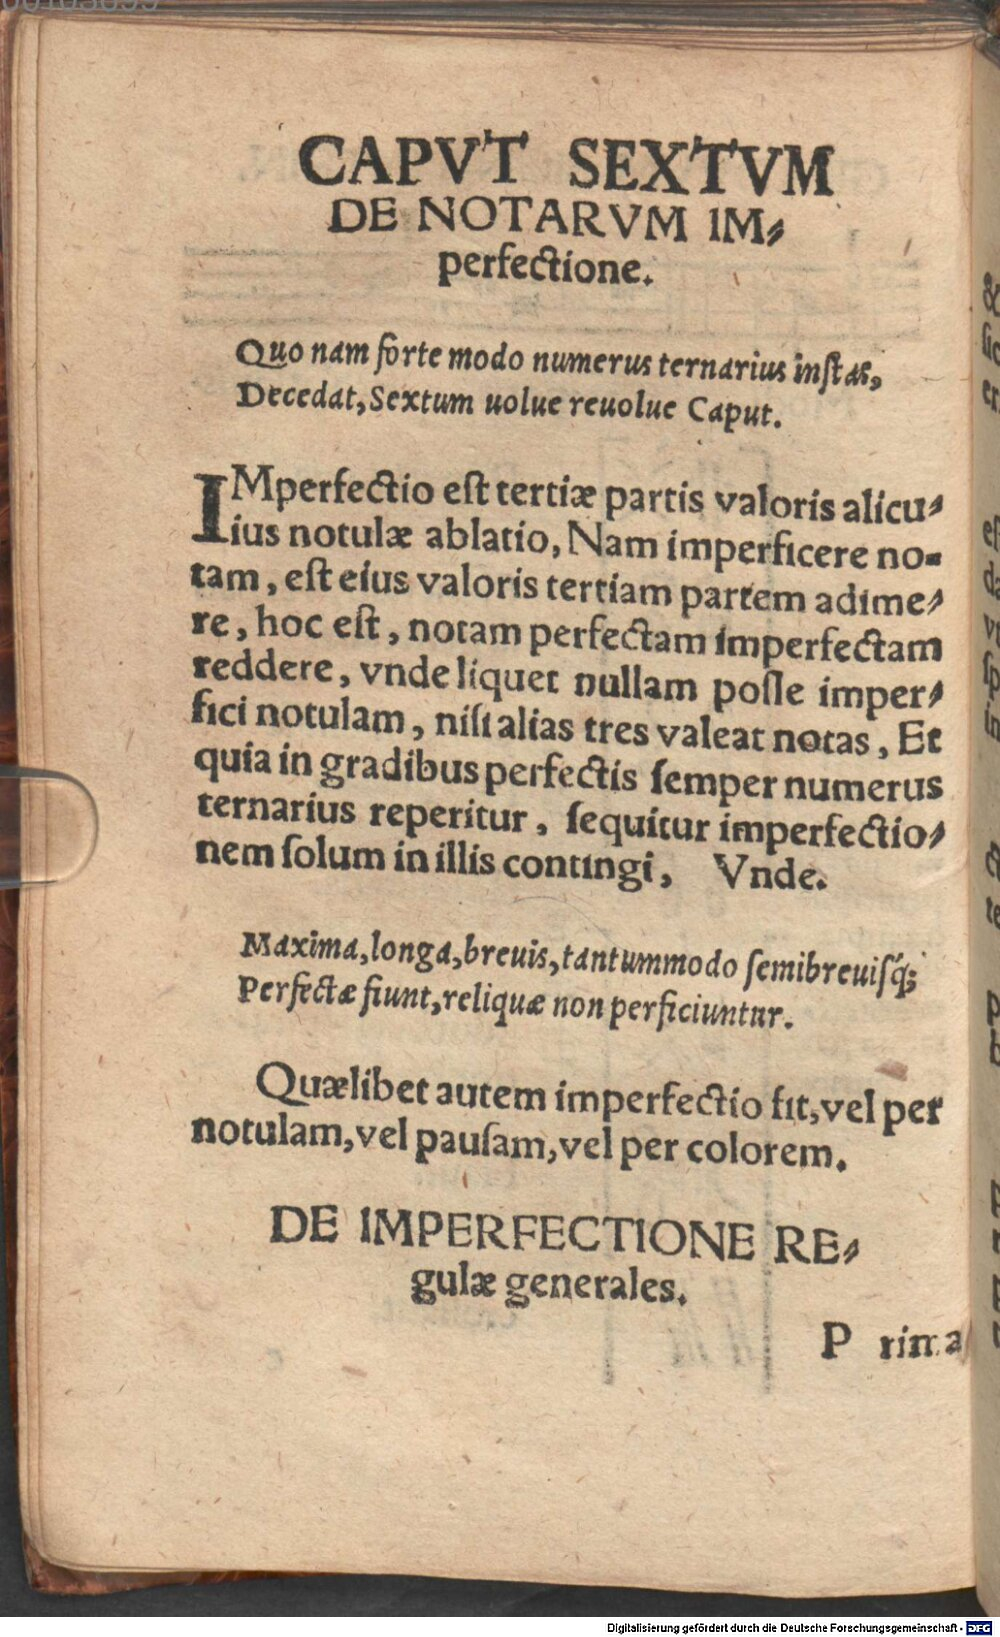 CAPVT SEXTVM
DE NOTARVM IM⸗
perfectione.
Quo nam forte modo numerus ternarius inſtas,
Decedat, Sextum uolue reuolue Caput.
IMperfectio eſt tertiæ partis valoris alicu⸗
ius notulæ ablatio, Nam imperficere no⸗
tam, eſt eius valoris tertiam partem adime⸗
re, hoc eſt, notam perfectam imperfectam
reddere, vnde liquet nullam poſſe imper⸗
fici notulam, niſi alias tres valeat notas, Et
quia in gradibus perfectis ſemper numerus
ternarius reperitur, ſequitur imperfectio⸗
nem ſolum in illis contingi, Vnde.
Maxima, longa, breuis, tantummodo ſemibreuiſq́;
Perfectæ fiunt, reliquæ non perficiuntur.
Quælibet autem imperfectio fit, vel per
notulam, vel pauſam, vel per colorem.
DE IMPERFECTIONE RE⸗
gulæ generales.
P rima
Digitalisierung gefördert durch die Deutsche Forschungsgemeinschaft - DFG